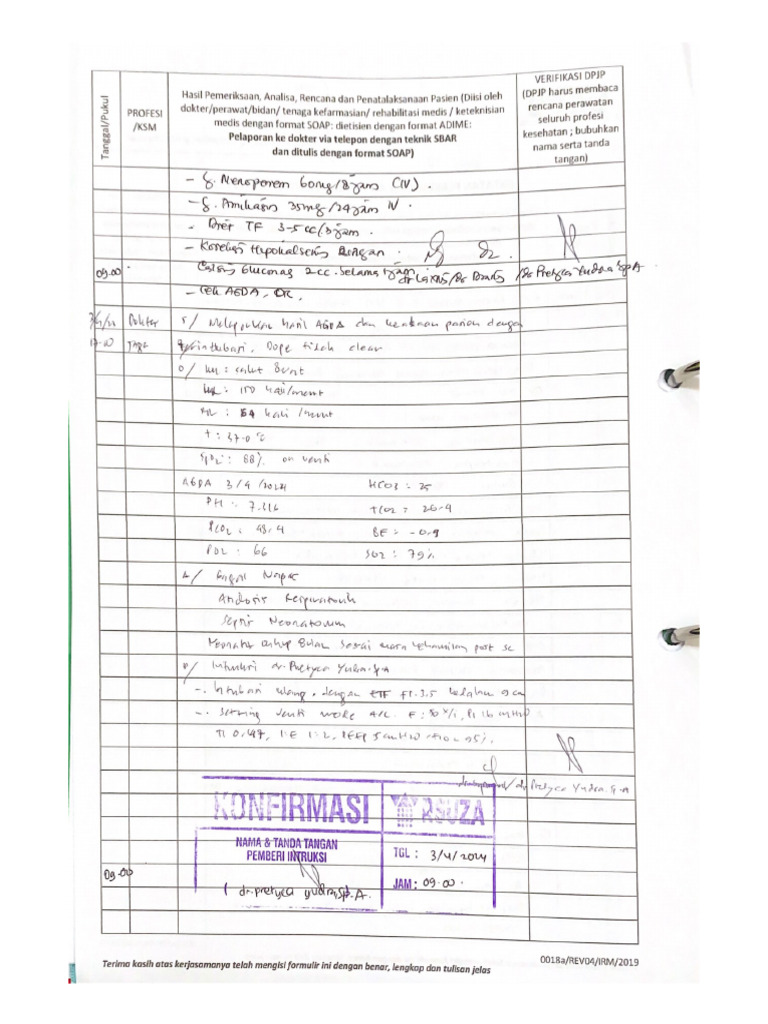 Tanggal/Pukul
PROFESI /KSM
Hasil Pemeriksaan, Analisa, Rencana dan Penatalaksanaan Pasien (Diisi oleh
dokter/perawat/bidan/ tenaga kefarmasian/ rehabilitasi medis / keteknisian
medis dengan format SOAP: dietisien dengan format ADIME:
Pelaporan ke dokter via telepon dengan teknik SBAR
dan ditulis dengan format SOAP)
VERIFIKASI DPJP
(DPJP harus membaca
rencana perawatan
seluruh profesi
kesehatan ; bubuhkan
nama serta tanda
tangan)
- g. Meropenem 60mg/8jam (IV).
- g. Amikasin 35mg/24jam IV
- Diet TF 3-5cc/3jam.
- Koreksi Hipokalsemia dengan
09.00 Calcium Gluconas 2cc. Selama 1jam
- Cek AGDA, DR,
Dokter S/ Melaporkan hasil AGDA dan keadaan pasien dengan
17.00 Jaga
O/ KU:
HR : 150 kali/menit
RR : 54 kali /menit
T : 37.0 °C
SpO2 : 88% on venti
AGDA 3/4/2024 HCO3 = 25
PH : TCO2 = 26.9
PCO2 : 48.4 BE = -0.9
PO2 : 66 SO2 : 79%
A/ Gagal Napas
Asidosis Respiratorik
Sepsis Neonatorum
Neonatus cukup bulan sesuai masa kehamilan post sc
P/ Intruksi dr. Pretyca Yudra. Sp.A
- Intubasi ulang, dengan ETT
- Setting venti mode A/C.
I:E 1:2, PEEP 5 cmH2O
dr. Pretyca Yudra. Sp.A
KONFIRMASI RSUZA
NAMA & TANDA TANGAN
PEMBERI INTRUKSI
TGL : 3/4/2024
09.00
( dr. pretyca yudra, Sp.A.
JAM : 09.00
Terima kasih atas kerjasamanya telah mengisi formulir ini dengan benar, lengkap dan tulisan jelas
0018a/REV04/IRM/2019